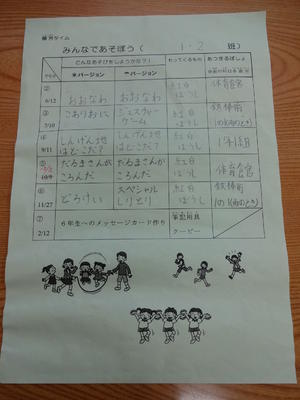 みんなであそぼう( 1・2 班)
どんなあそびをしようかな?! もってくるもの あつまるばしょ
バージョン バージョン
② 6/12 おおなわ おおなわ 紅白ぼうし 体育館
③ 7/10 こおりおに ジェスチャーゲーム 紅白ぼうし 鉄棒前
④ 9/11 しんげん地はどこだ? しんげん地はどこだ? 紅白ぼうし 1年1組
⑤ 10/9 だるまさんがころんだ だるまさんがころんだ 紅白ぼうし 体育館
⑥ 11/27 どろけい スペシャルしりとり 紅白ぼうし 鉄棒前
⑦ 2/12 6年生へのメッセージカード作り 筆記用具 クーピー